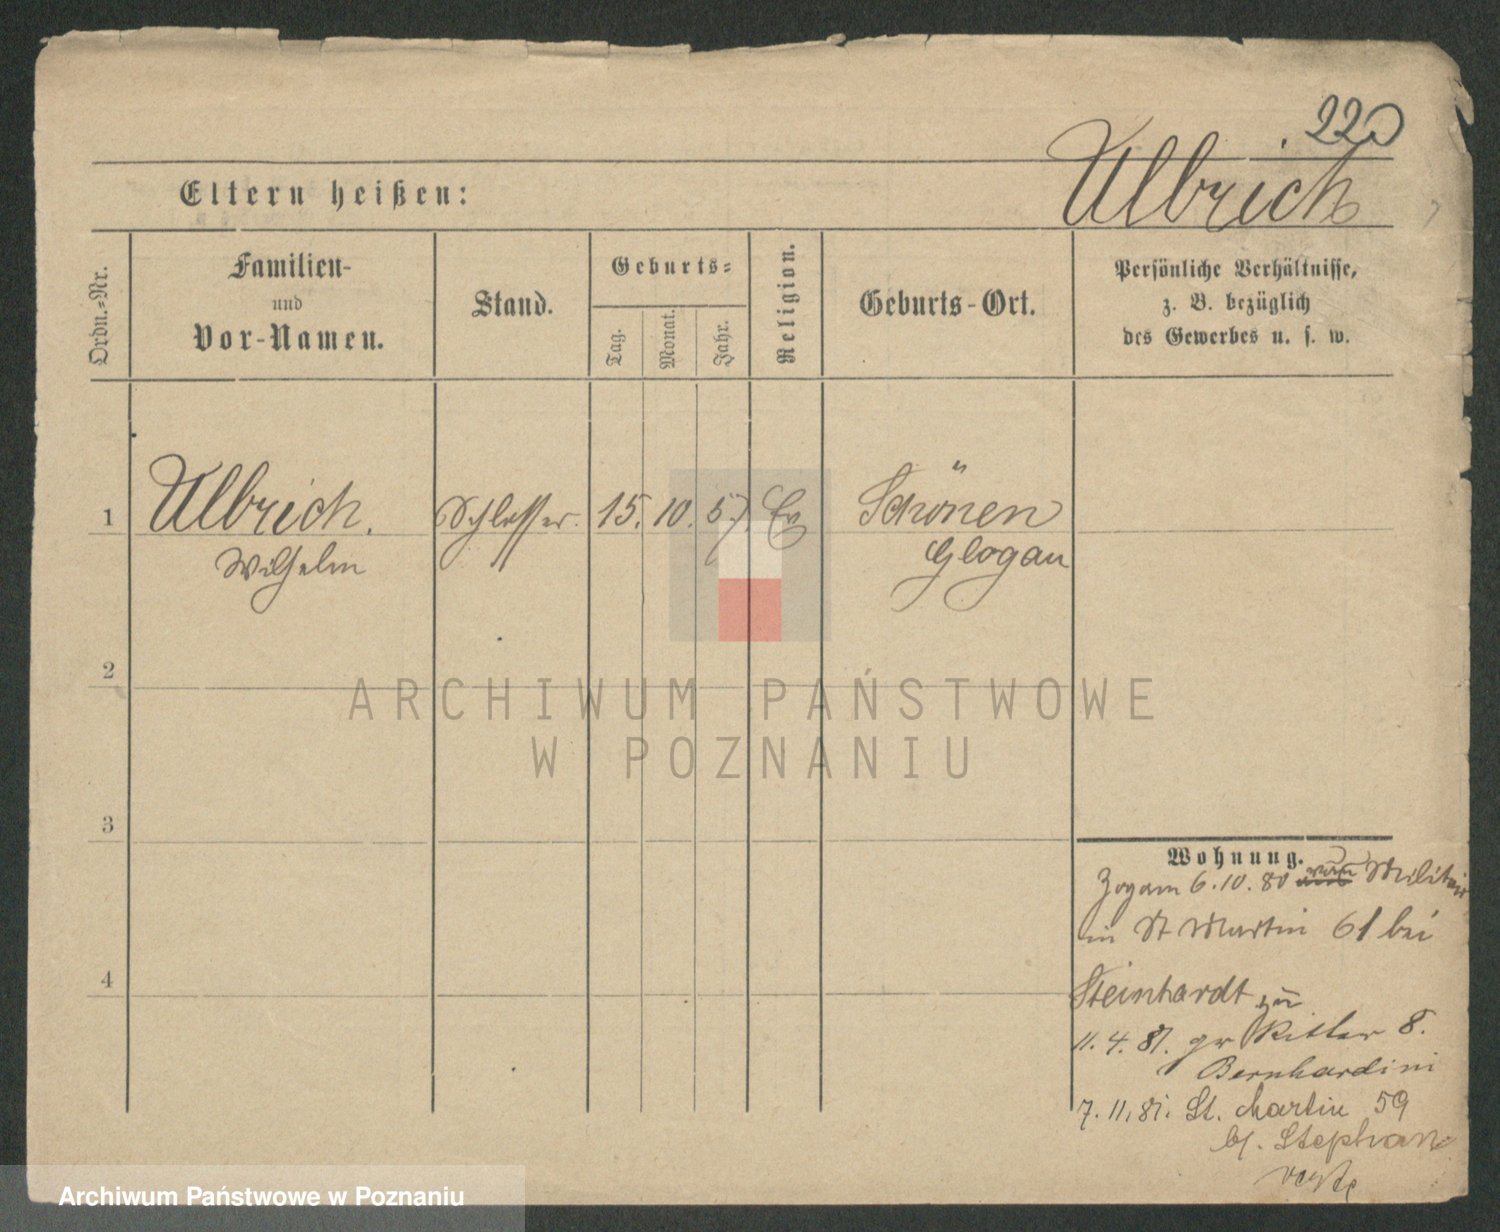 220
Ulbrich
Eltern heißen:
Ordn.-Nr.
Familien-
und
Vor-Namen.
Stand.
Geburts-
Tag.
Monat.
Jahr.
Religion.
Geburts-Ort.
Persönliche Verhältnisse,
z. B. bezüglich
des Gewerbes u. s. w.
1
Ulbrich.
Wilhelm
Schlosser.
15.
10.
57
Ev
Schönen
Glogau
2
3
4
Wohnung.
Zogam 6.10.80 Militair
in St Martin 61 bei
Steinhardt
11.4.81. gr Ritter 8.
Bernhardini
7.11.81. St. Martin 59
bj. Stephan
ARCHIWUM PAŃSTWOWE
W POZNANIU
Archiwum Państwowe w Poznaniu